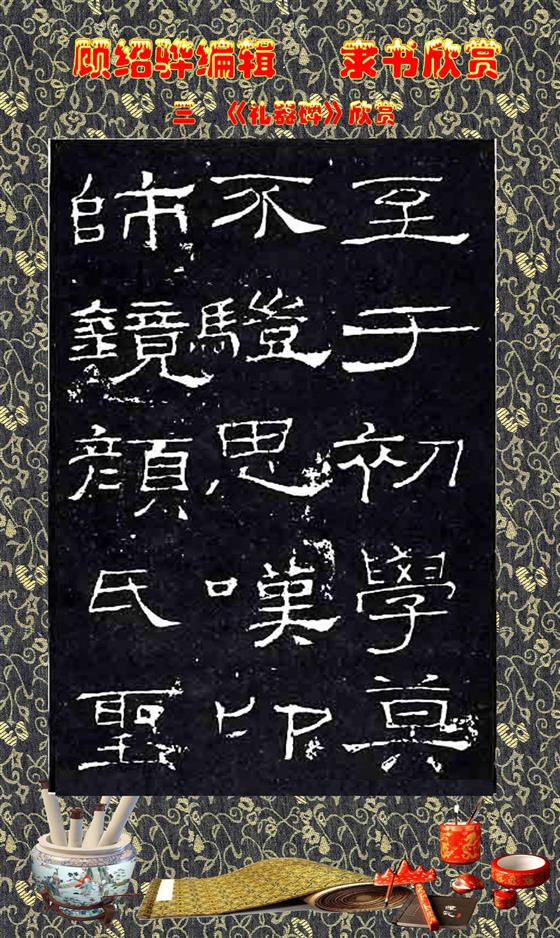 顾绍骅编辑 隶书欣赏
三 《礼器碑》欣赏
至于初學莫
不驥思嘆卬
師鏡顏氏聖